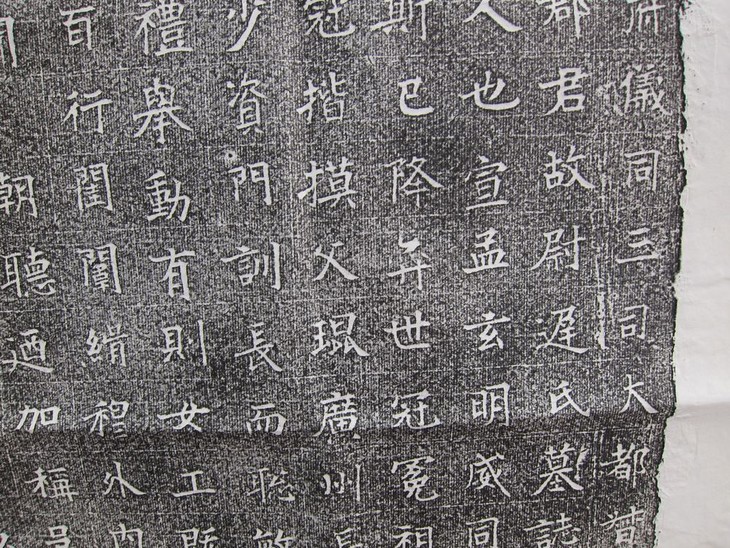 府儀同三司大都督
郡君故尉遲氏墓誌
人也宣孟玄明威同
斯已降弈世冠冕祖
冠揩摸父琨廣州
少資門訓長而聡敏
禮舉動有則女工
百行閨闈緝穆外内
朝聽迺加稱